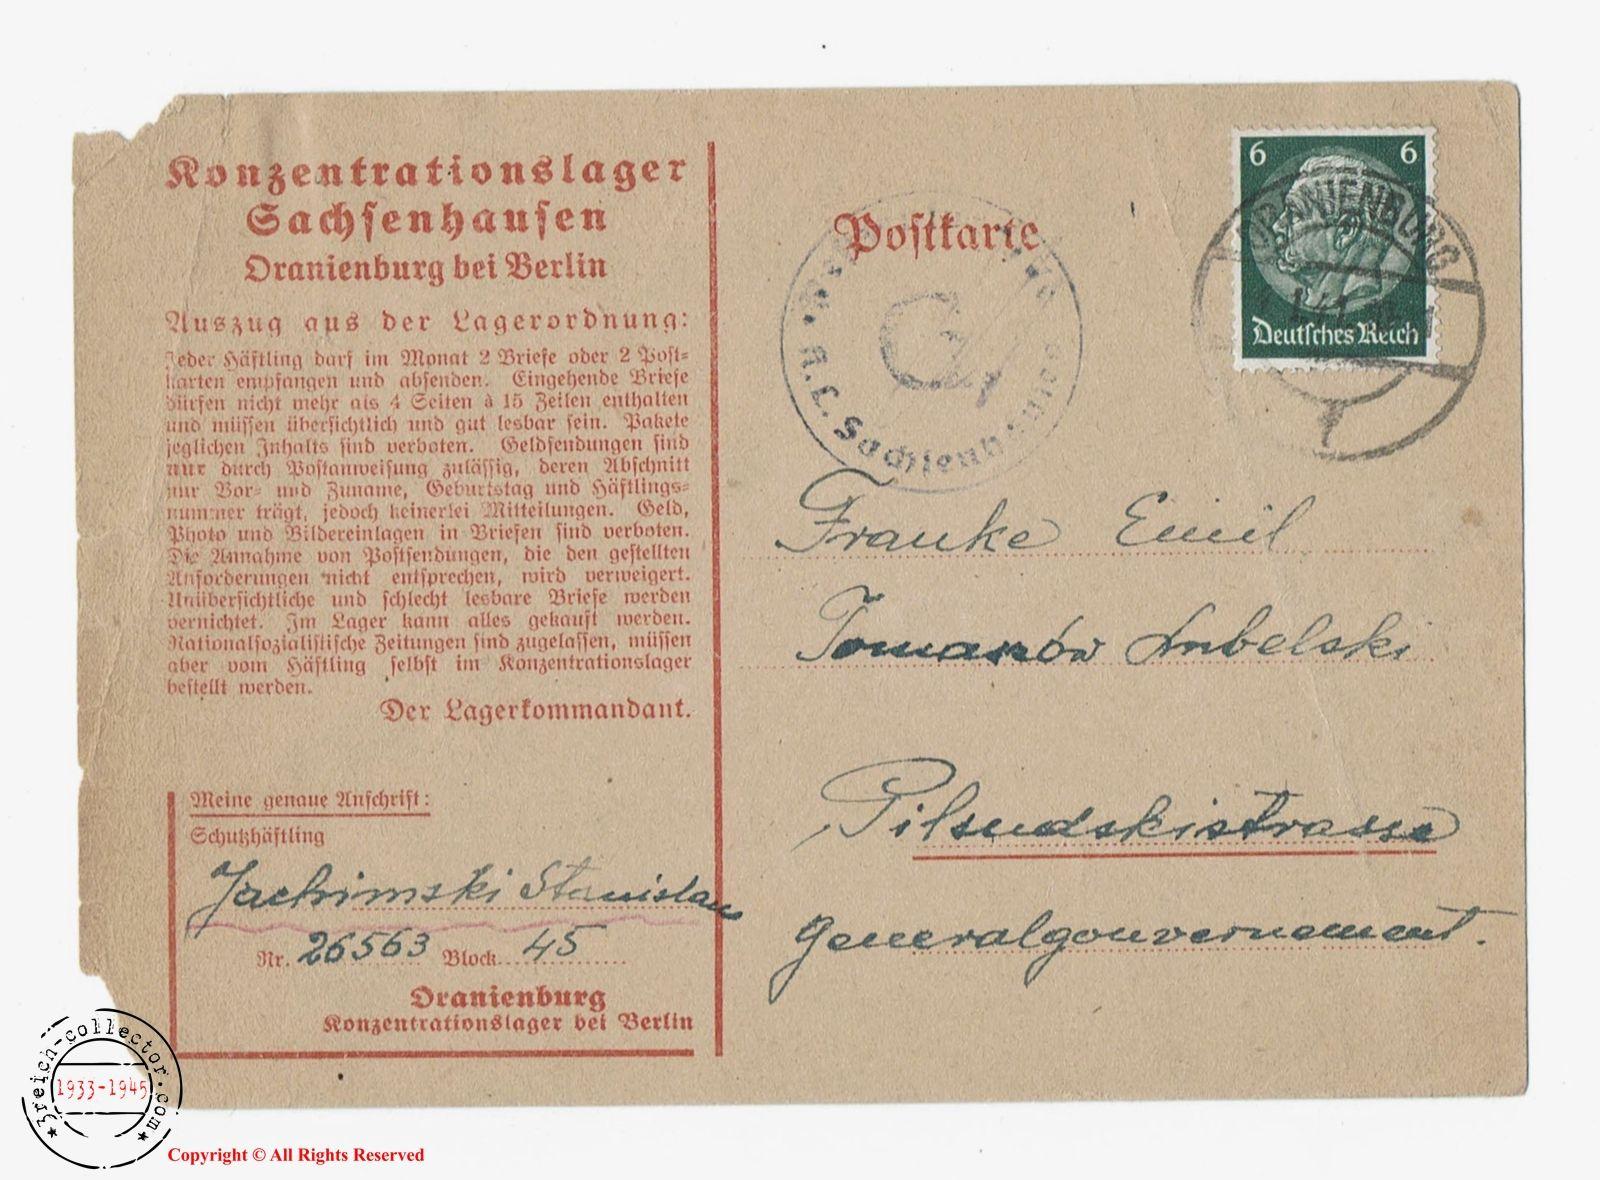 Konzentrationslager
Sachsenhausen
Oranienburg bei Berlin
Auszug aus der Lagerordnung:
Jeder Häftling darf im Monat 2 Briefe oder 2 Post-
karten empfangen und absenden. Eingehende Briefe
dürfen nicht mehr als 4 Seiten à 15 Zeilen enthalten
und müssen übersichtlich und gut lesbar sein. Pakete
jeglichen Inhalts sind verboten. Geldsendungen sind
nur durch Postanweisung zulässig, deren Abschnitt
nur Vor- und Zuname, Geburtstag und Häftlings-
nummer trägt, jedoch keinerlei Mitteilungen. Geld,
Photo und Bildereinlagen in Briefen sind verboten.
Die Annahme von Postsendungen, die den gestellten
Anforderungen nicht entsprechen, wird verweigert.
Unübersichtliche und schlecht lesbare Briefe werden
vernichtet. Im Lager kann alles gekauft werden.
Nationalsozialistische Zeitungen sind zugelassen, müssen
aber vom Häftling selbst im Konzentrationslager
bestellt werden.
Der Lagerkommandant.
Meine genaue Anschrift:
Schutzhäftling
Jachimski Stanislaus
Nr. 26563 Block 45
Oranienburg
Konzentrationslager bei Berlin
Postkarte
K.L. Sachsenhausen
6 6
Deutsches Reich
ORANIENBURG
Franke Emil
Tomaszów Lubelski
Pilsudskistrasse
Generalgouvernement.
3reich-collector.com
1933-1945
Copyright © All Rights Reserved